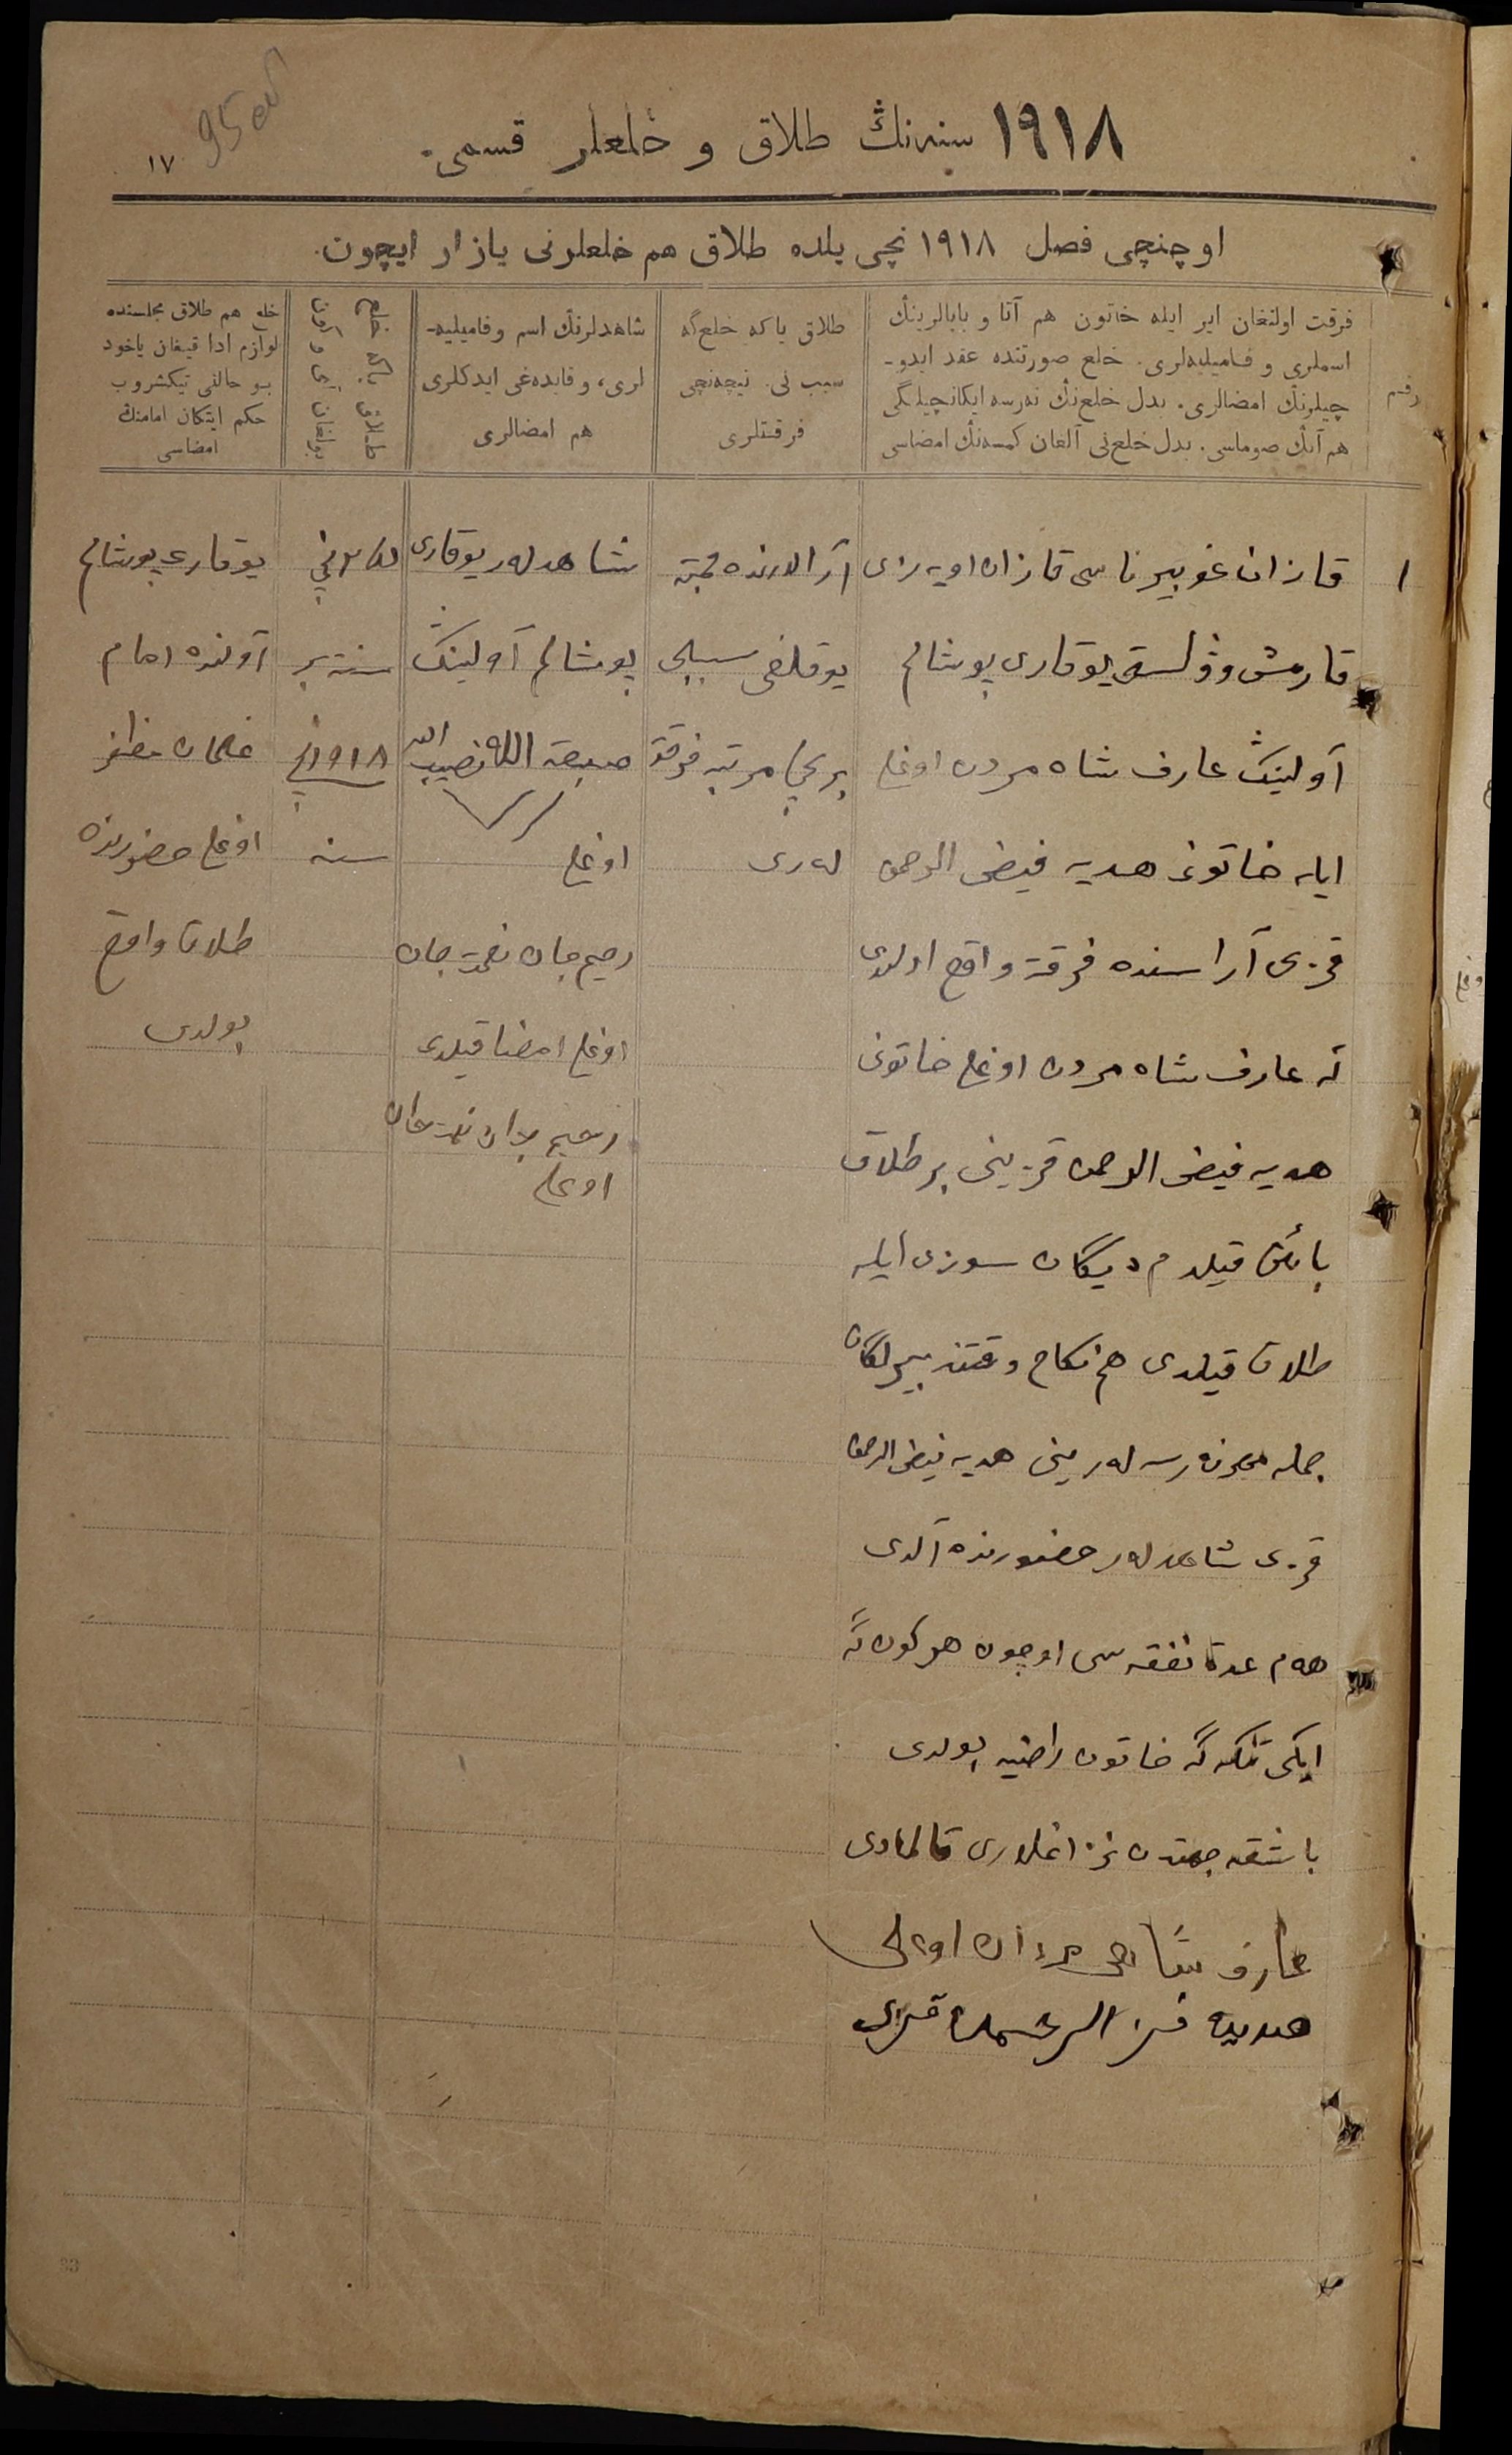 95 об
١٧
١٩١٨ سنه‌نڭ طلاق و خلعلر قسمی.
اوچنچی فصل ١٩١٨ نچی یلده طلاق هم خلعلرنی یازار ایچون.
رقم
فرقت اولنغان ایر ایله خاتون هم آتا و بابالرینڭ
اسملری و فامیلیه‌لری. خلع صورتنده عقد ایدو-
چیلرنڭ امضالری. بدل خلع‌نڭ نه‌رسه ایكانچیلگی
هم آنڭ صوماسی. بدل خلع‌نی آلغان كمسه‌نڭ امضاسی
طلاق یاكه خلع‌گه
سبب نی. نیچه‌نچی
فرقتلری
شاهدلرنڭ اسم و فامیلیه-
لری، و قایده‌غی ایدكلری
هم امضالری
طلاق یاكه خلع
بولغان آی و كون
خلع هم طلاق مجلسنده
لوازم ادا قیغان یاخود
بو حالنی تیكشروب
حكم ایتكان امامنڭ
امضاسی
١
قازان غوبیرناسی قازان اویه‌زی
قارمش وولست یوقاری پوشالم
آولینڭ عارف شاه مردن اوغلی
ایله خاتونی هدیه فیض الرحمن
قزی آراسنده فرقة واقع اولدی
كه عارف شاه مردن اوغلی خاتونی
هدیه فیض الرحمن قزینی بر طلاق
بائن قیلدم دیگان سوزی ایله
طلاق قیلدی هم نكاح وقتنده بیرلگان
جمله مهر نه‌رسه له‌رینی هدیه فیض الرحمن
قزی شاهدله‌ر حضورنده آلدی
هه‌م عدة نفقه سی اوچون هر كون گه
ایكی تنكه گه خاتون راضیه بولدی
باشقه جهتدن نزاعلاری قالمادی
عارف شاهی مردان اوغلی
هدیه فیز الرحمان قزی
آرالارنده محبة
یوقلغی سببلی
برنچی مرتبه فرقة
له‌ری
شاهدله‌ر یوقاری
پوشالم آولینڭ
صبغة الله نصیب الله
اوغلی
رحیم جان نعمت جان
اوغلی امضا قیلدی
رحیم جان نعمت جان
اوغلی
سنتبر
١٩١٨ نچی
سنه
یوقاری پوشالم
آولنده امام
غلمان مظفر
اوغلی حضورنده
طلاق واقع
بولدی
33